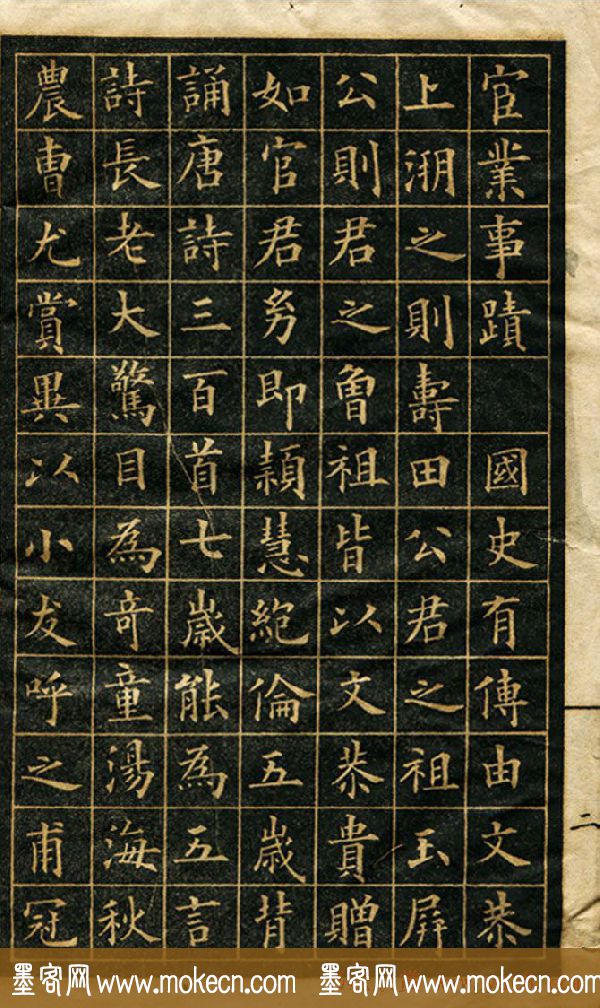 官業事蹟 國史有傳由文恭
上溯之則壽田公君之祖玉屏
公則君之曾祖皆以文恭貴贈
如官君㓜即穎慧絶倫五歲背
誦唐詩三百首七歲能為五言
詩長老大驚目為奇童湯海秋
農曹尤賞異以小友呼之甫冠
二
墨客网 www.mokecn.com 墨客网 www.mokecn.com